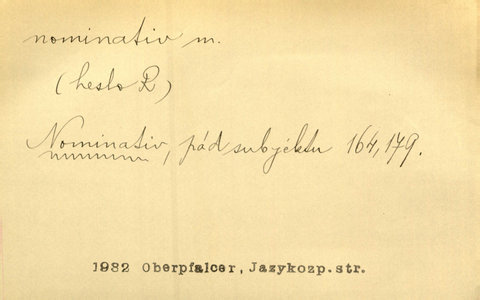 nominativ m.
(heslo R)
Nominativ, pád subjektu 164, 179.
1932 Oberpfalcer, Jazykozp. str.